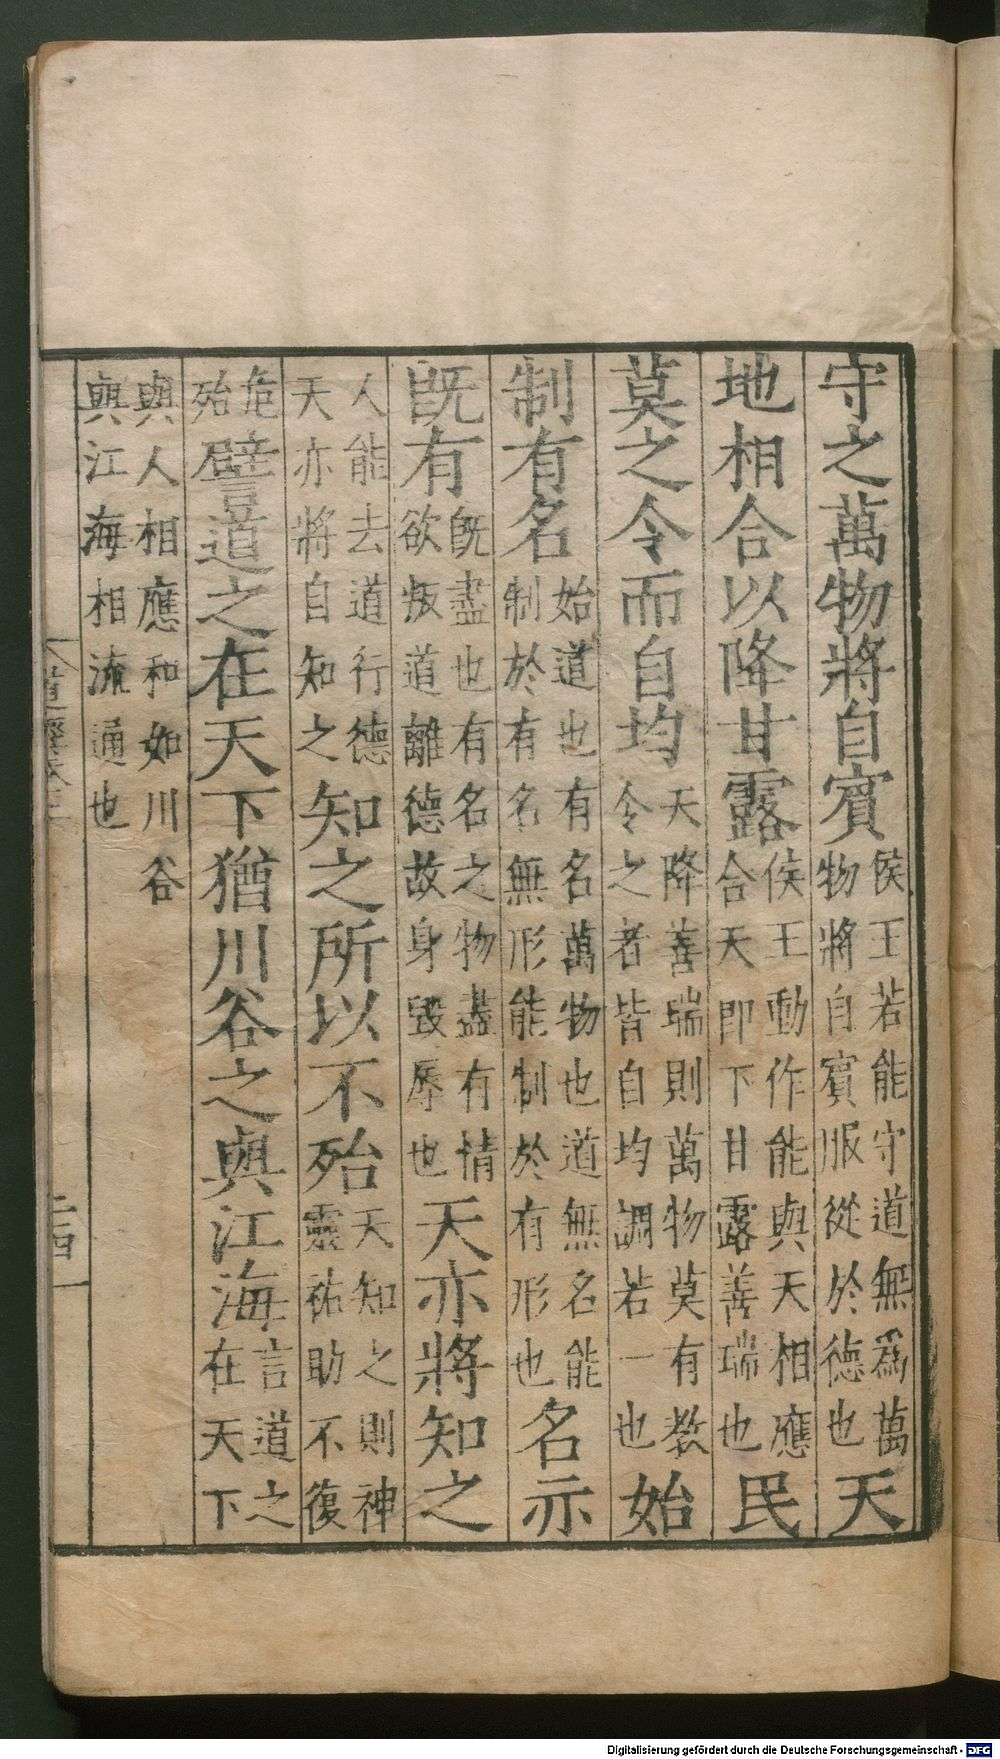 守之萬物將自賓侯王若能守道無爲萬物將自賓服從於德也天
地相合以降甘露侯王動作能與天相應合天即下甘露善瑞也民
莫之令而自均天降善瑞則萬物莫有教令之者皆自均調若一也始
制有名始道也有名萬物也道無名能制於有名無形能制於有形也名亦
旣有旣盡也有名之物盡有情欲叛道離德故身毀辱也天亦將知之
人能去道行德天亦將自知之知之所以不殆天知之則神靈祐助不復
危殆譬道之在天下猶川谷之與江海言道之在天下
與人相應和如川谷與江海相流通也
道經卷上
二四
Digitalisierung gefördert durch die Deutsche Forschungsgemeinschaft - DFG